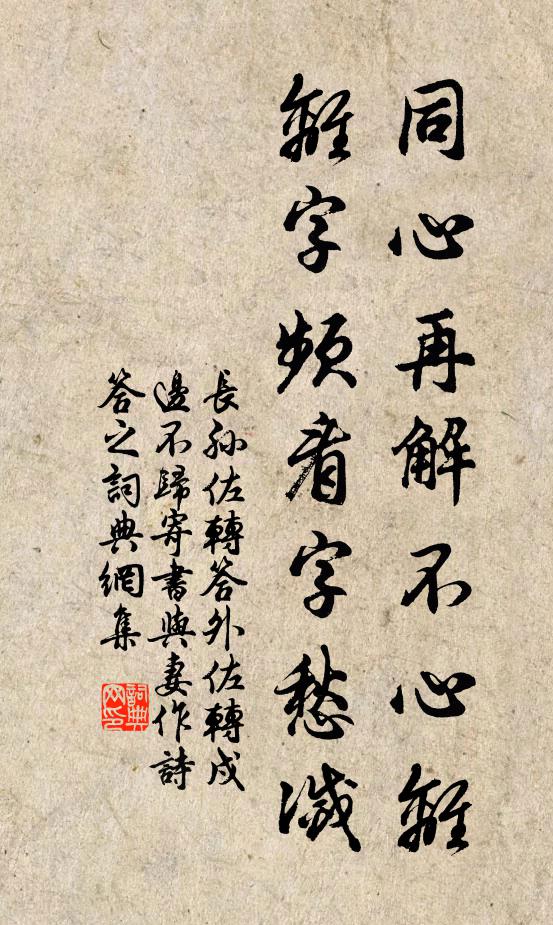 同心再解不心離
離字頻看字愁滅
長孫佐轉答外佐轉戍
邊不歸寄書與妻作詩
答之詞典網集
詞典网印